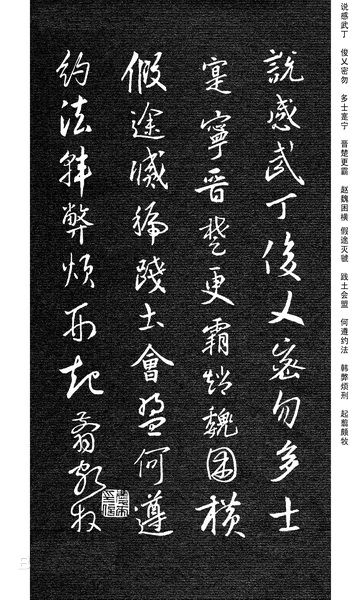 说感武丁 俊乂密勿 多士寔宁 晋楚更霸 赵魏困横 假途灭虢 践土会盟 何遵约法 韩弊烦刑 起翦颇牧
說感武丁俊乂密勿多士
寔寧晉楚更霸趙魏困橫
假途滅虢踐土會盟何遵
約法韓弊煩刑起翦頗牧